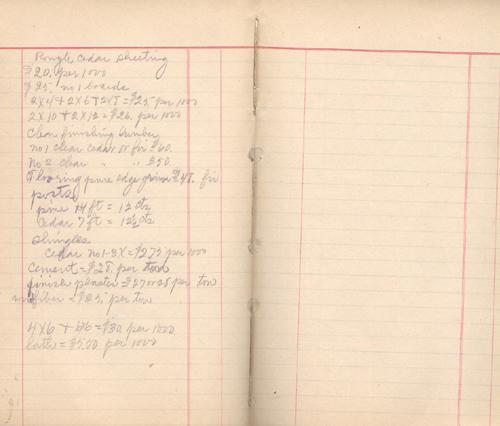 Rough Cedar Sheeting
$20. per 1000
$25. no 1 boards
2x4 + 2x6 + 2x8 = $25. per 1000
2x10 + 2x12 = $26. per 1000
Clear finishing lumber
no 1 clear cedar or fir $60.
No 2 clear " " $50.
Flooring pine edge grain $48. fir
posts
pine 14 ft = 12 cts
Cedar 7 ft = 12½ cts
Shingles
Cedar no 1 - 3X = $2.75 per 1000
Cement = $28. per ton
finish plaster = $27 or 28 per ton
fiber = $25. per ton
4x6 + 6x6 = $30. per 1000
laths = $5.50 per 1000